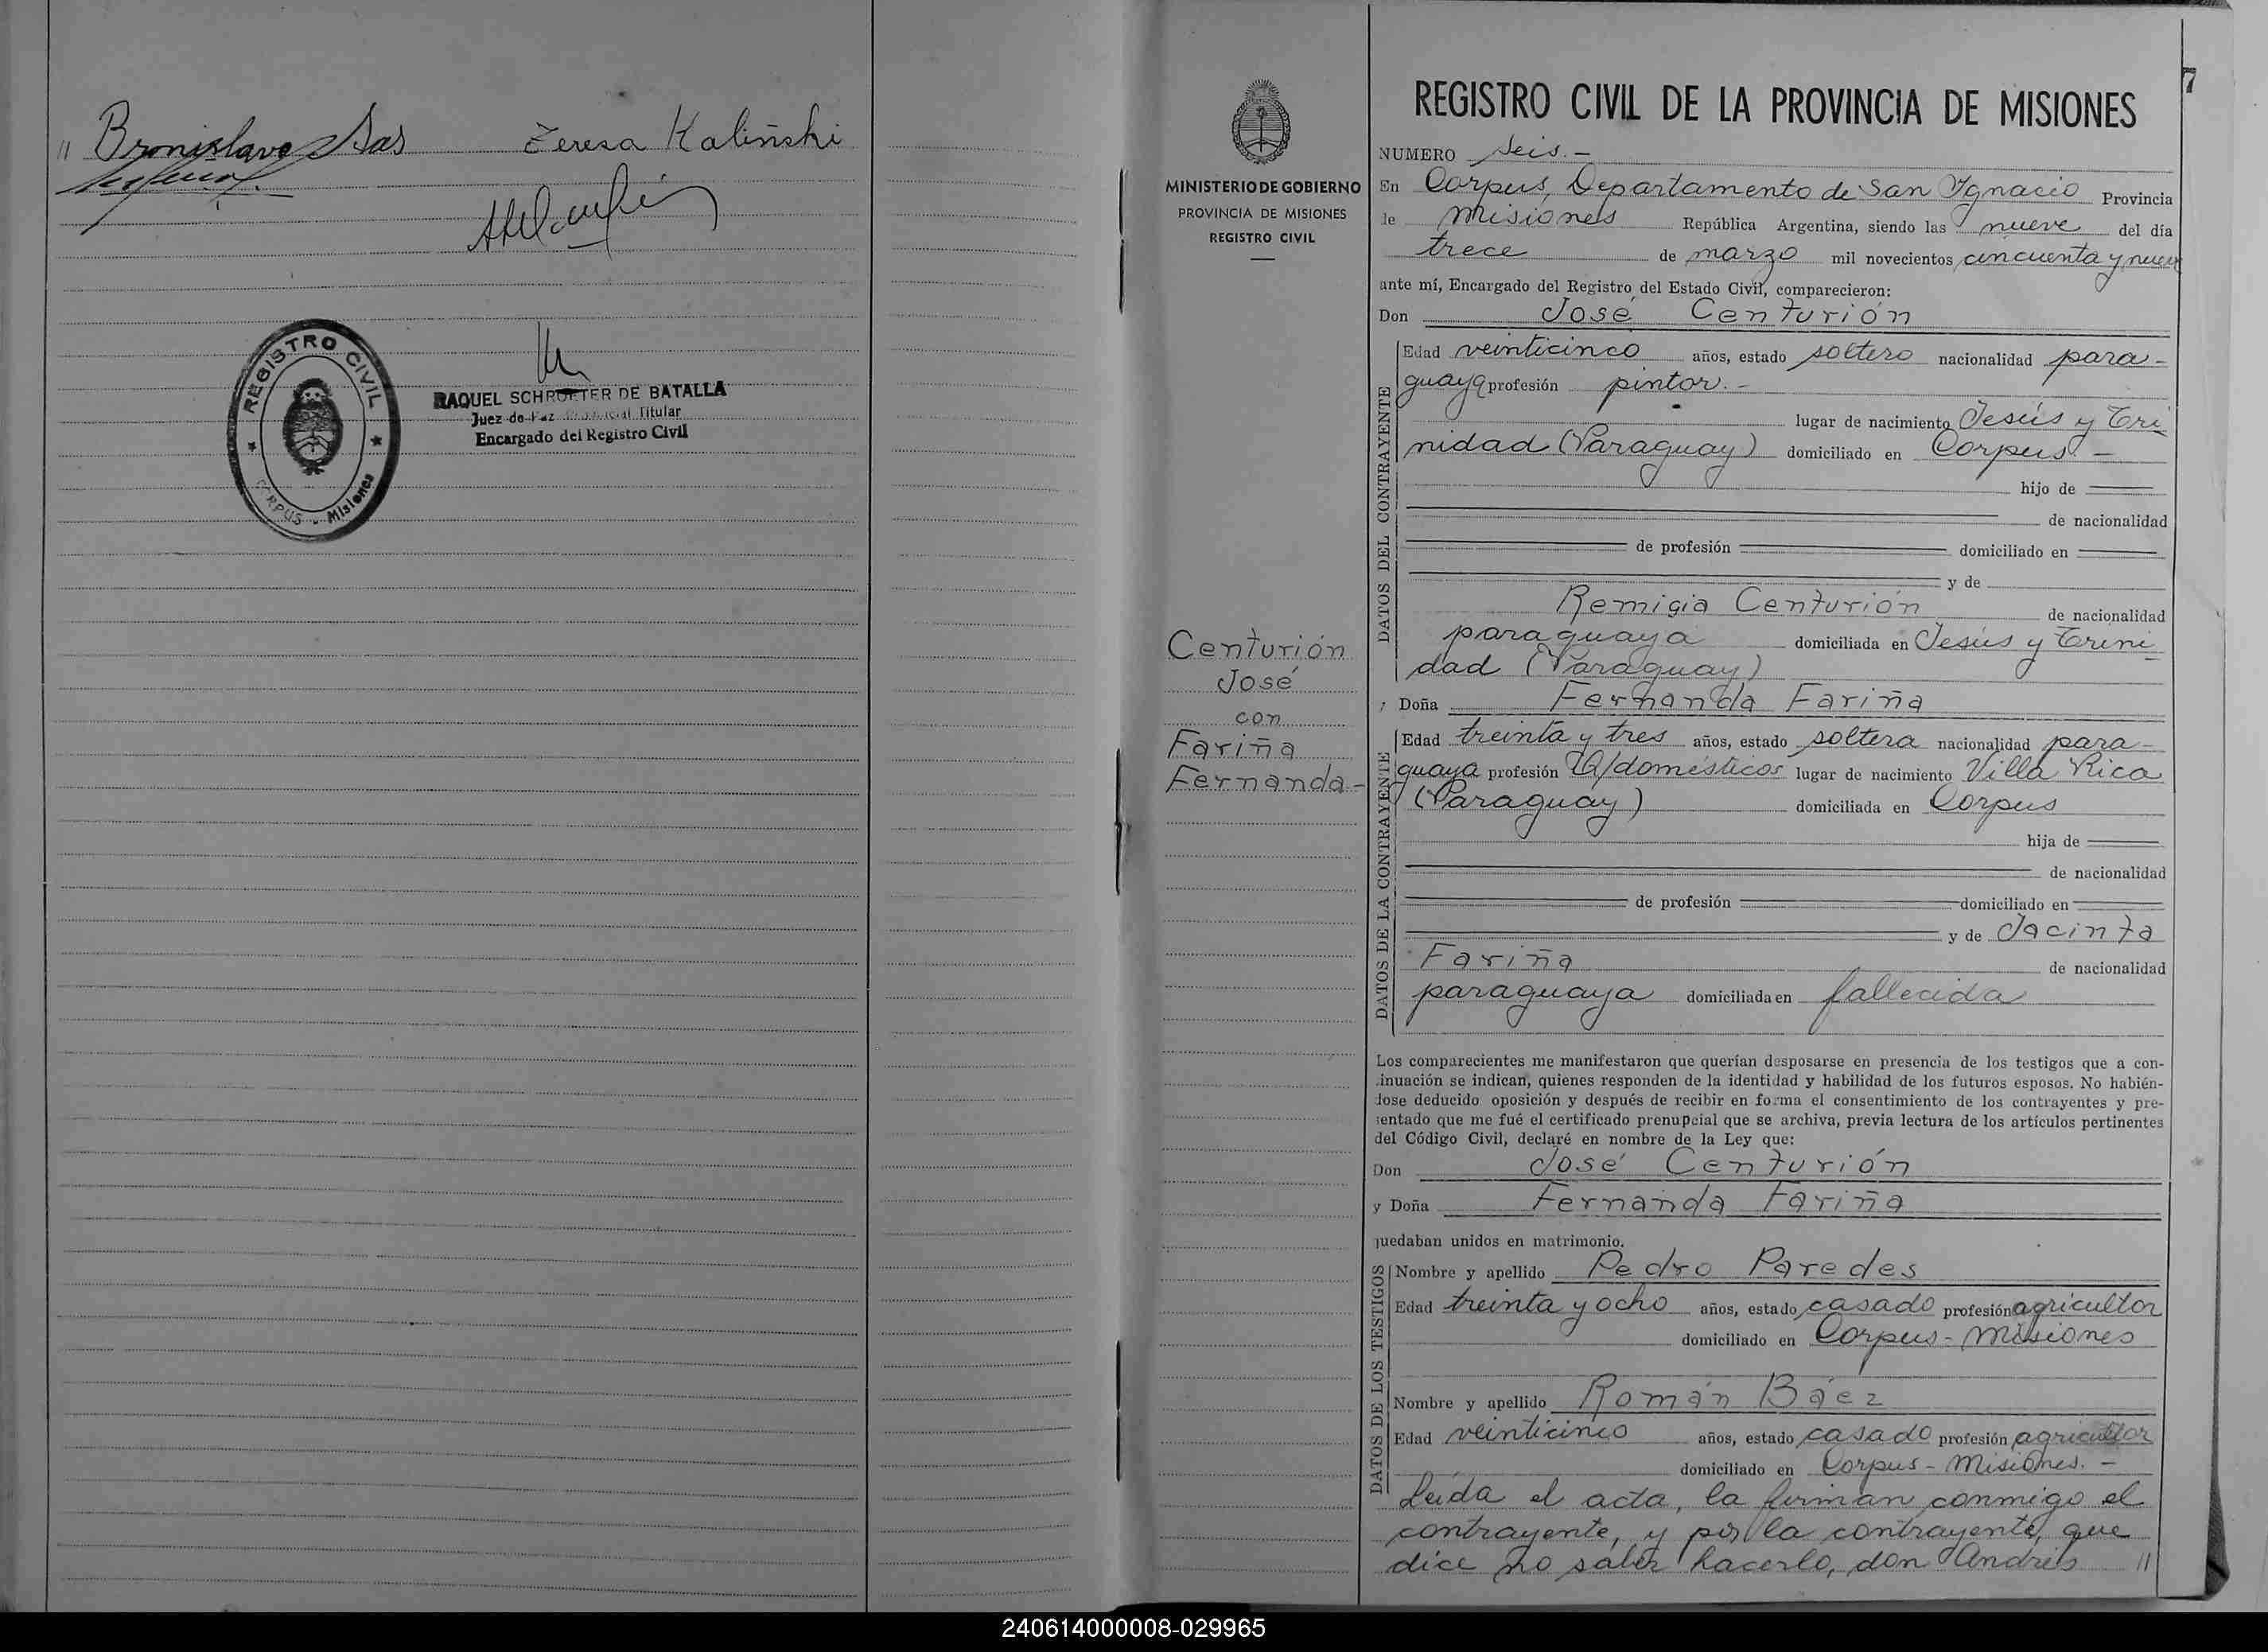 " Bronislavo Sas Teresa Kaliñski
REGISTRO CIVIL
CORPUS - Misiones
RAQUEL SCHROETER DE BATALLA
Juez de Paz Provincial Titular
Encargado del Registro Civil
7
MINISTERIO DE GOBIERNO
PROVINCIA DE MISIONES
REGISTRO CIVIL
Centurión
José
con
Fariña
Fernanda -
REGISTRO CIVIL DE LA PROVINCIA DE MISIONES
NUMERO Seis. -
En Corpus, Departamento de San Ignacio Provincia
de Misiones República Argentina, siendo las nueve del día
trece de marzo mil novecientos cincuenta y nueve
ante mí, Encargado del Registro del Estado Civil, comparecieron:
Don José Centurión
DATOS DEL CONTRAYENTE
Edad veinticinco años, estado soltero nacionalidad para-
guaya profesión pintor. -
lugar de nacimiento Jesús y Tri
nidad (Paraguay) domiciliado en Corpus. -
hijo de
de nacionalidad
de profesión domiciliado en
y de
Remigia Centurión de nacionalidad
paraguaya domiciliada en Jesús y Trini
dad (Paraguay)
y Doña Fernanda Fariña
DATOS DE LA CONTRAYENTE
Edad treinta y tres años, estado soltera nacionalidad para-
guaya profesión Q/domésticos lugar de nacimiento Villa Rica
(Paraguay) domiciliada en Corpus
hija de
de nacionalidad
de profesión domiciliado en
y de Jacinta
Fariña de nacionalidad
paraguaya domiciliada en fallecida
Los comparecientes me manifestaron que querían desposarse en presencia de los testigos que a con-
tinuación se indican, quienes responden de la identidad y habilidad de los futuros esposos. No habién-
dose deducido oposición y después de recibir en forma el consentimiento de los contrayentes y pre-
sentado que me fué el certificado prenupcial que se archiva, previa lectura de los artículos pertinentes
del Código Civil, declaré en nombre de la Ley que:
Don José Centurión
y Doña Fernanda Fariña
quedaban unidos en matrimonio.
DATOS DE LOS TESTIGOS
Nombre y apellido Pedro Paredes
Edad treinta y ocho años, estado casado profesión agricultor
domiciliado en Corpus - Misiones
Nombre y apellido Román Báez
Edad veinticinco años, estado casado profesión agricultor
domiciliado en Corpus - Misiones. -
Leída el acta, la firman conmigo el
contrayente, y por la contrayente, que
dice no saber hacerlo, don Andrés "
240614000008-029965